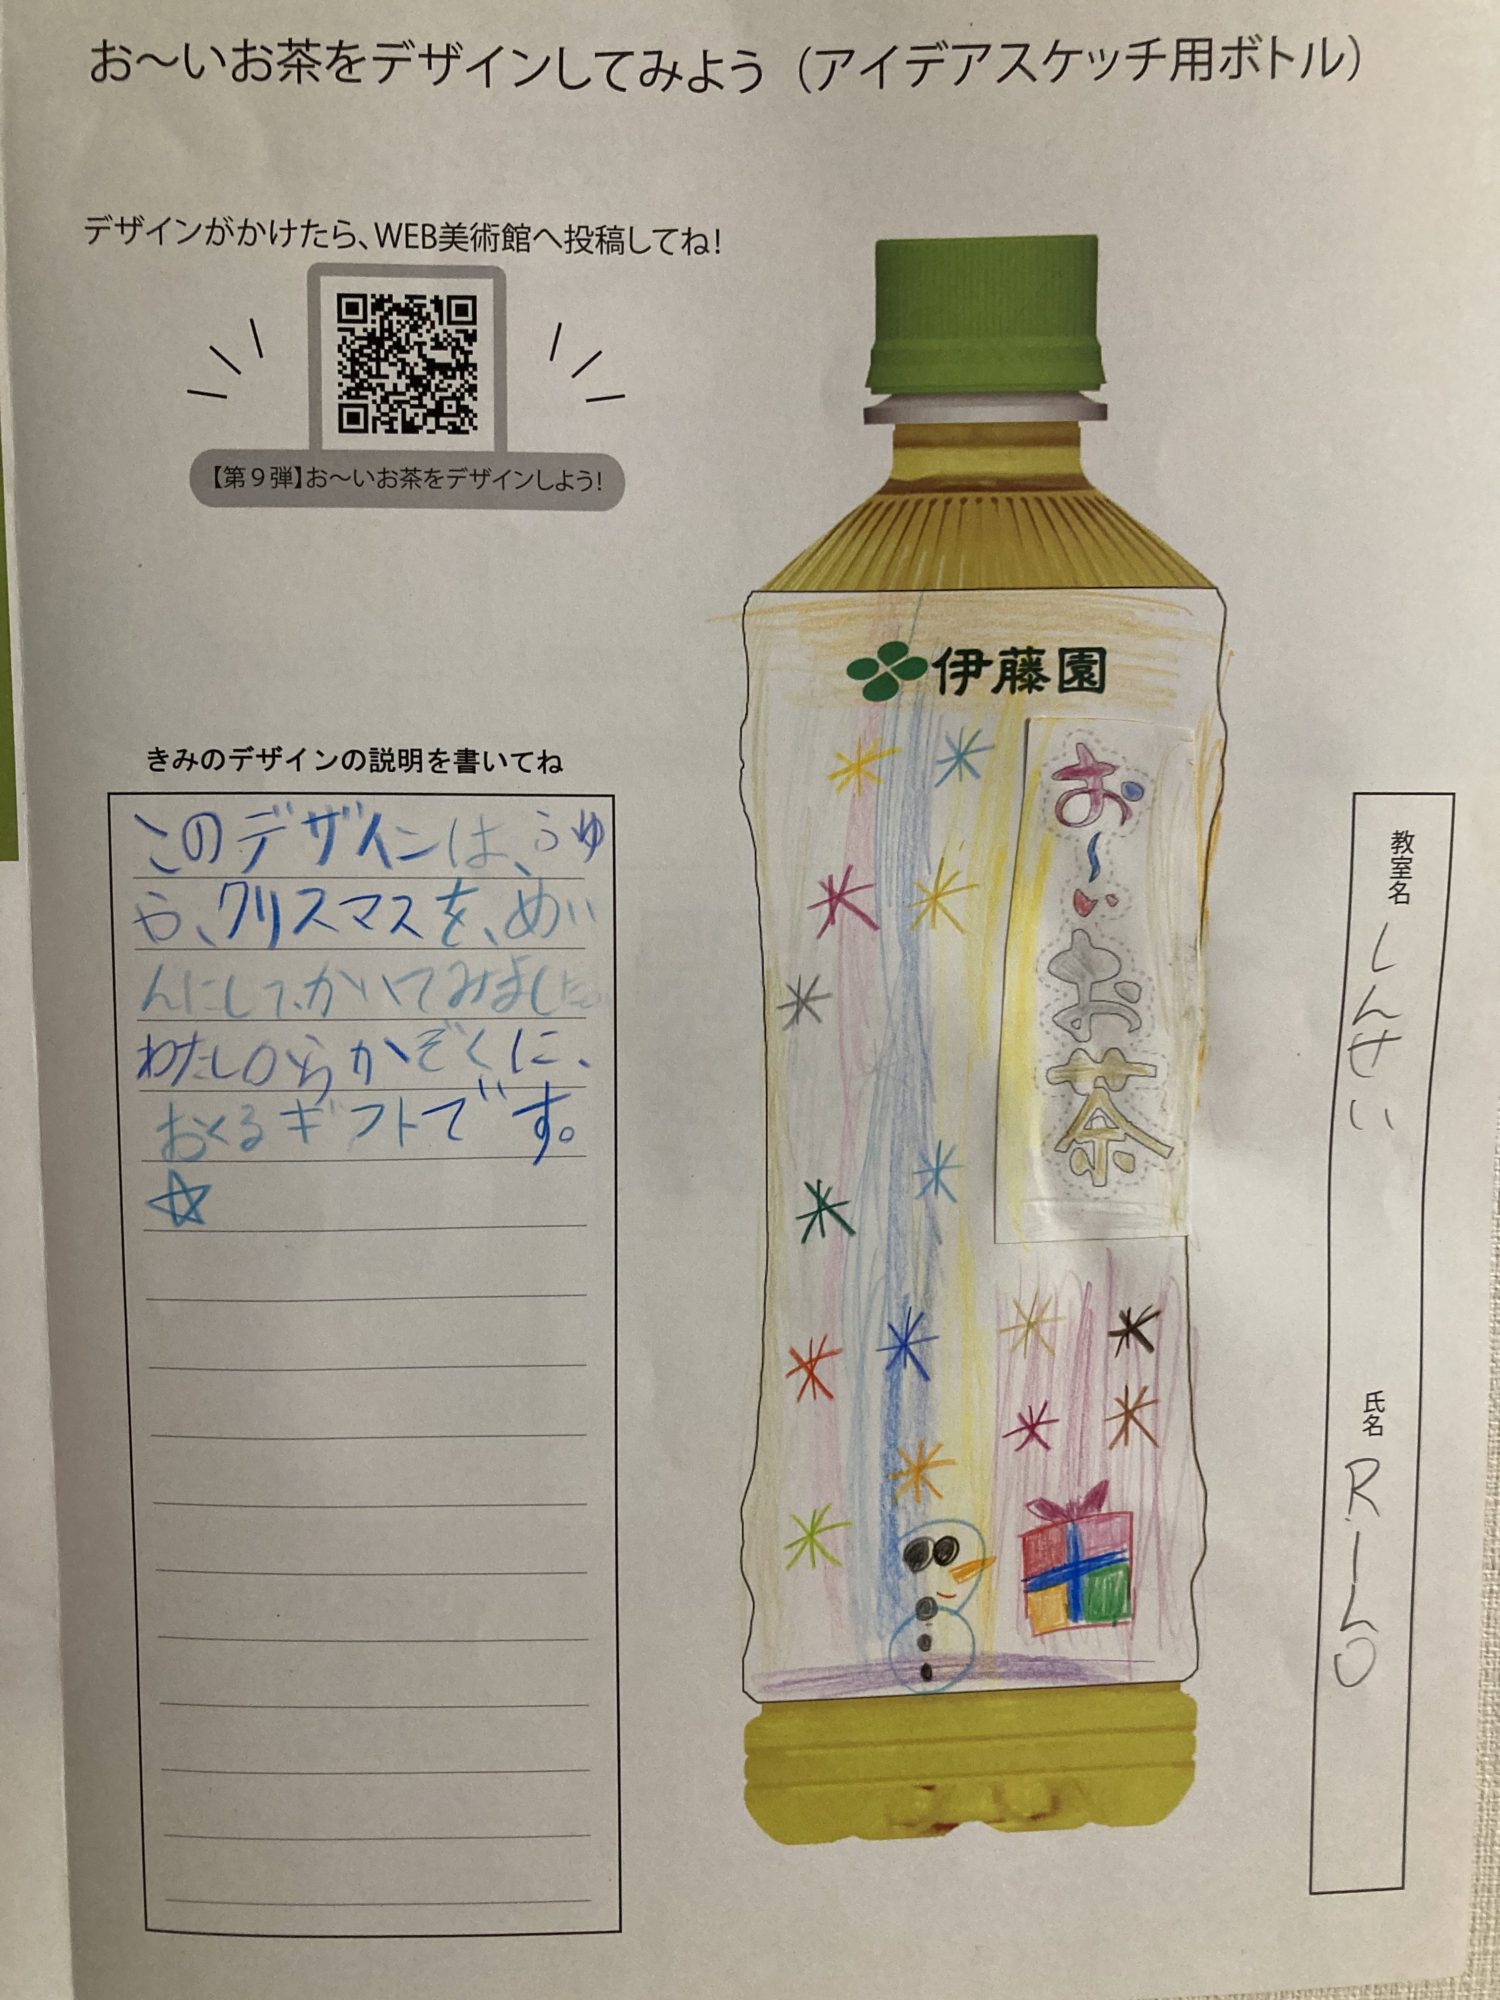 お～いお茶をデザインしてみよう（アイデアスケッチ用ボトル）
デザインがかけたら、WEB美術館へ投稿してね!
【第9弾】お～いお茶をデザインしよう!
伊藤園
お～いお茶
きみのデザインの説明を書いてね
このデザインは、ふゆ
や、クリスマスを、めい
んにして、かいてみました
わたしからかぞくに、
おくるギフトです。
☆
教室名
しんせい
氏名
RILO